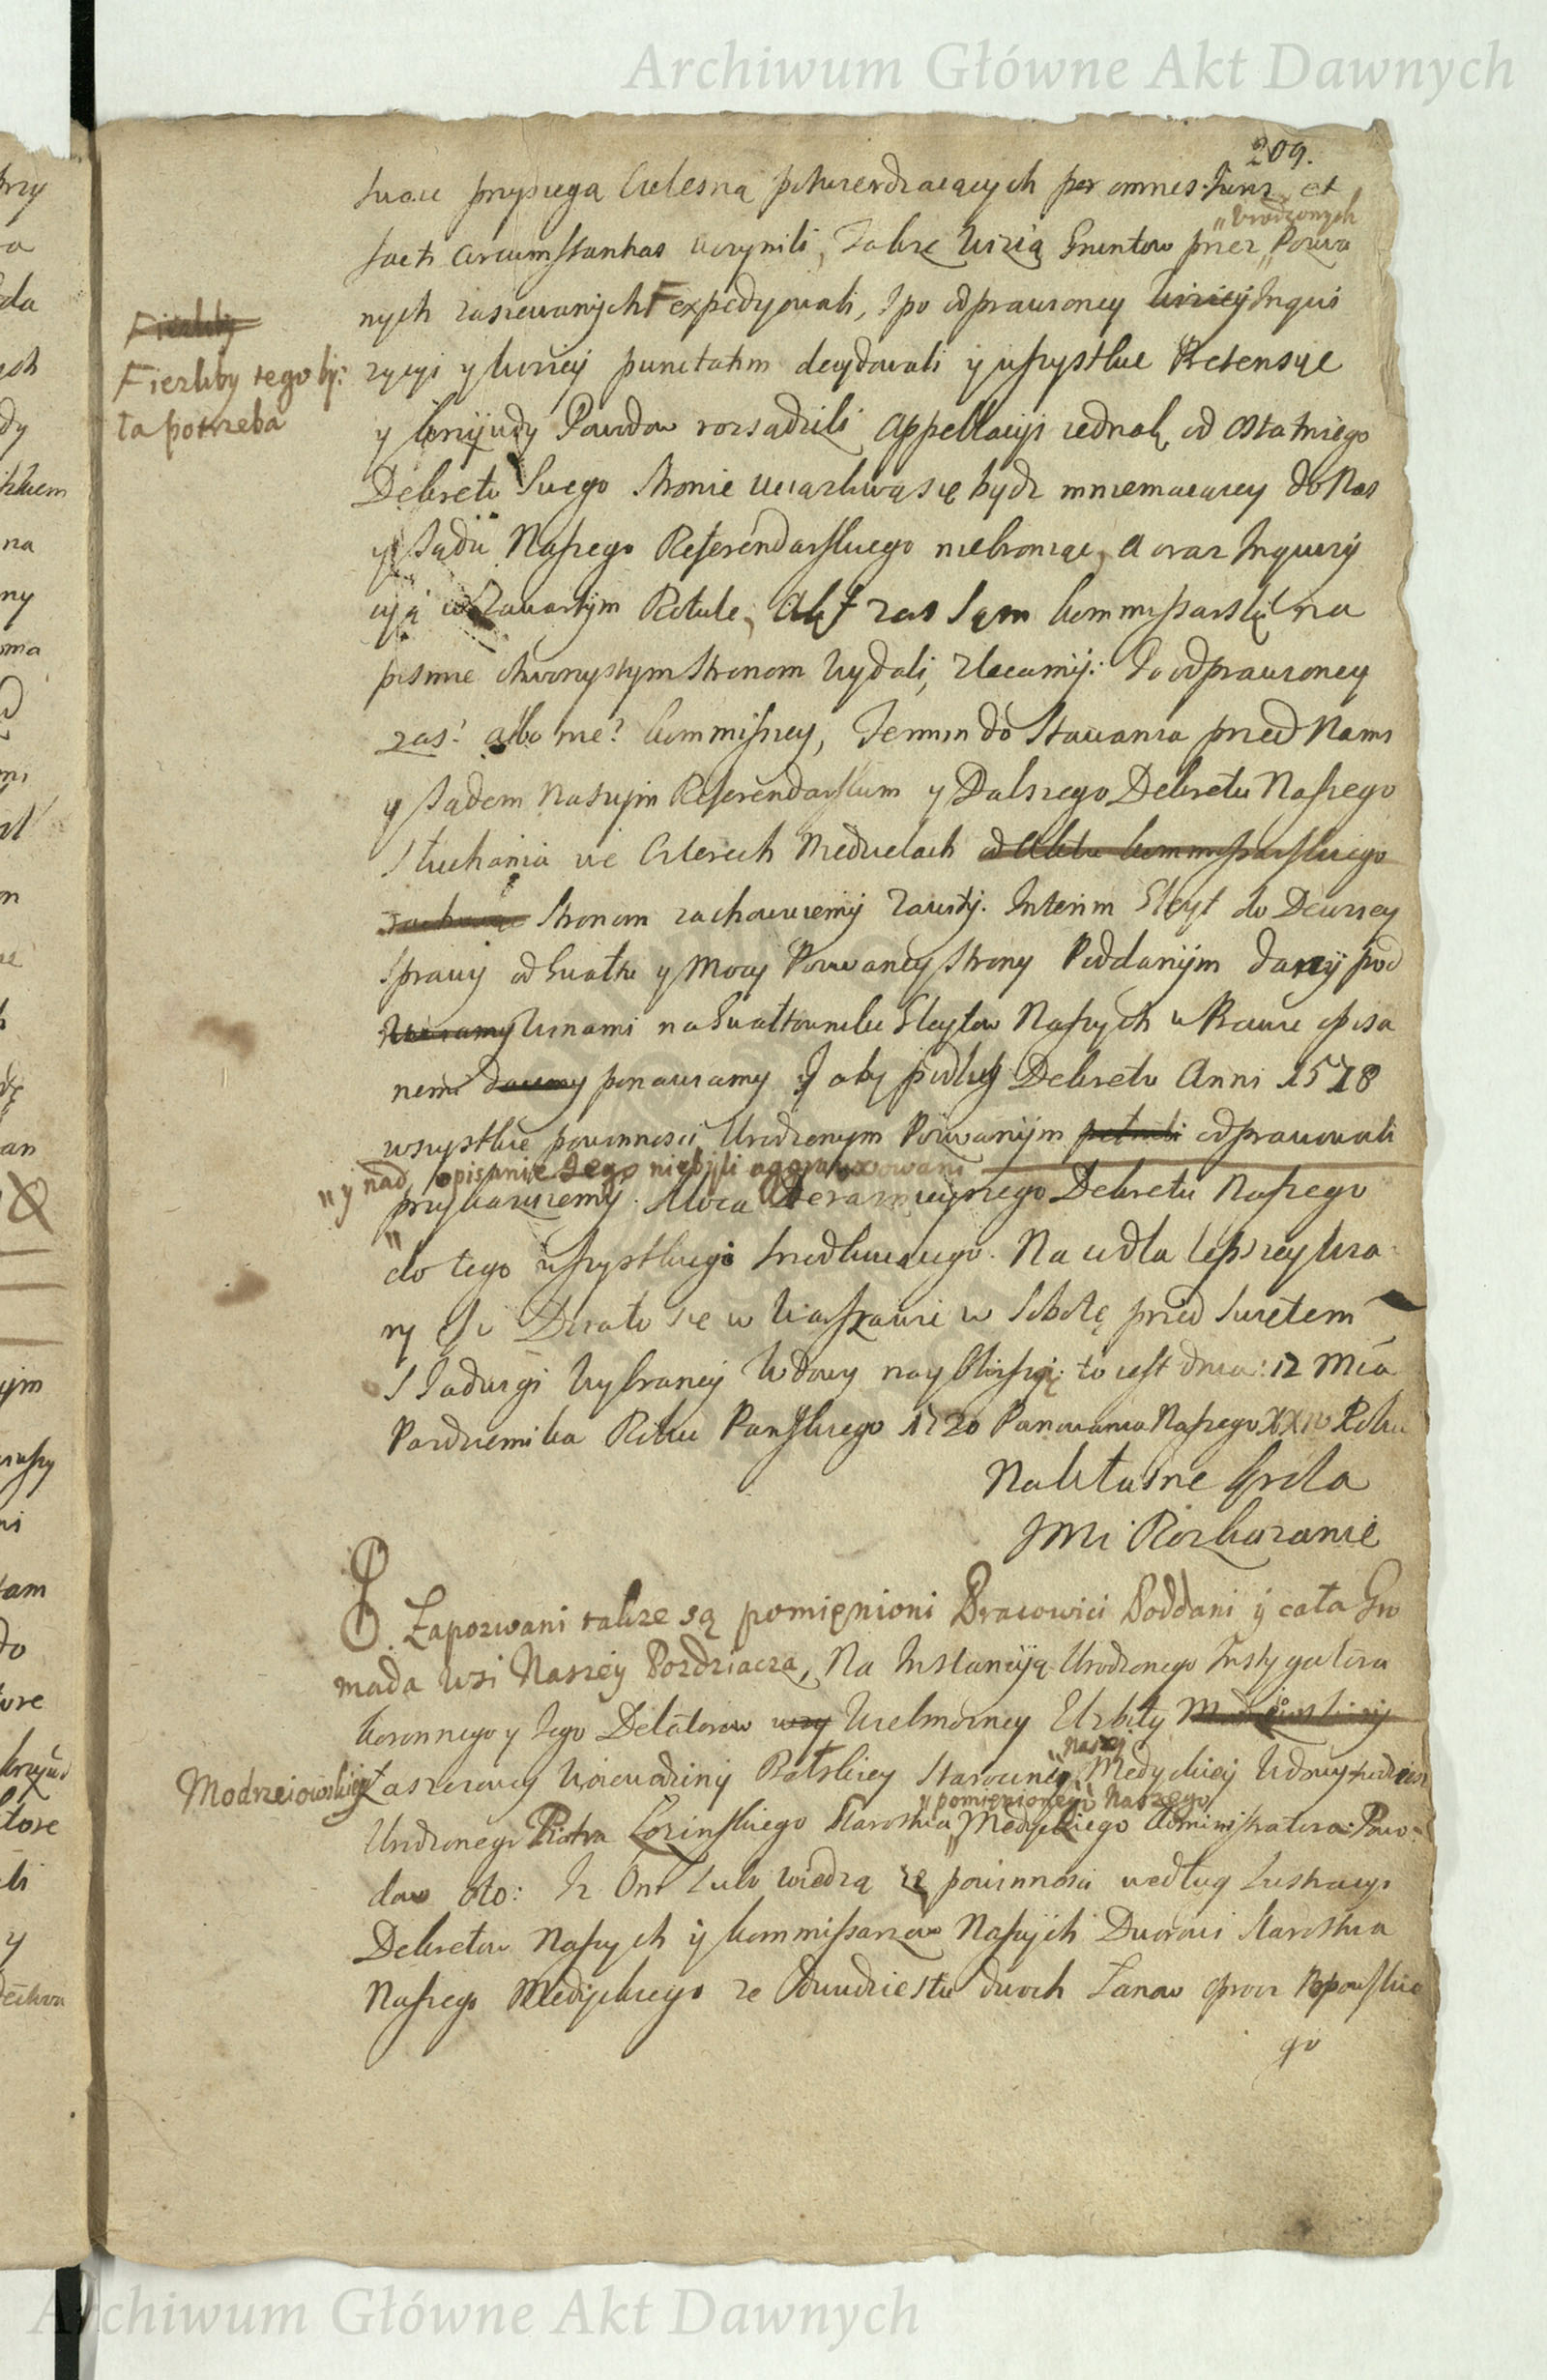 Archiwum Główne Akt Dawnych
209.
swoie przysięgą Cielesną potwierdzaiących per omnes Iuris et
facti circumstantias uczynili, Także wizią Gruntow przez „Urodzonych Pozwa
nych zasiewanych F expedyowali, I po odprawioney wiziey Inqui
F ieżliby
F ieżliby tego by:
ła potrzeba
zycyi y wiziey punctatim decydowali y wszystkie Pretensye
y krzywdy Powodow rozsądzili Appellacyi iednak od ostatniego
Dekretu swego stronie uciążliwą się bydź mniemaiącey do Nas
y Sądu Naszego Referendarskiego niebroniąc, a oraz Inquizy
cyą w Zawartym Rotule, Akt zas sam kommissarski na
pismie otworzystym stronom wydali, zlecamy: Po odprawioney
zas? albo nie? kommissyey, Termin do Stawania przed Nami
y Sądem Naszym Referendarskim y Dalszego Dekretu Naszego
Słuchania we Czterech Niedzielach od Aktu kommissarskiego
Stronom zachowuiemy zawity. Interim Gleyt do Dawney
sprawy od Gwałtu y Mocy Pozwaney strony Poddanym dany pod
winami na Gwałtownikow Gleytow Naszych w Prawie opisa
nemi ponawiamy Y aby podług Dekretu Anni 1578
wszystkie powinnosci Urodzonym Pozwanym odprawowali
„y nad opisanie Jego niebyli aggrawowani
przykazuiemy. Mocą Teraznieyszego Dekretu Naszego
„do tego wszystkiego
Na co dla lepszey wia-
ry &c Działo się w Warszawie w Sobotę przed Swiętem
S Jadwigi Wybraney Wdowy nayblizszą: to iest dnia: 12 Mca
Pazdziernika Roku Panskiego 1720 Panowania Naszego XXIV Roku
Na Własne Krola
JMci Rozkazanie
Zapozwani także są pomięnioni Pracowici Poddani y cała Gro
mada Wsi Naszey Pozdziacza, Na Instancyją Urodzonego Instygatora
koronnego y Jego Delatorow Wielmożney Elzbiety
Modrzeiowskiey
Łaszczowey Woiewodziny Bełskiey Starosciney „Naszey Medyckiey Wdowy tudziesz
Urodzonego Piotra Łozinskiego Starostwa „y pomienionego Naszego Medyckiego Administratora: Powo-
dow oto: Iż Oni Lubo wiedzą że powinnosci według Lustracyi
Dekretow Naszych y kommissarzow Naszych Dworowi Starostwa
Naszego Medyckiego ze dwudziestu dwoch Łanow oprocz Popowskie
go
Archiwum Główne Akt Dawnych